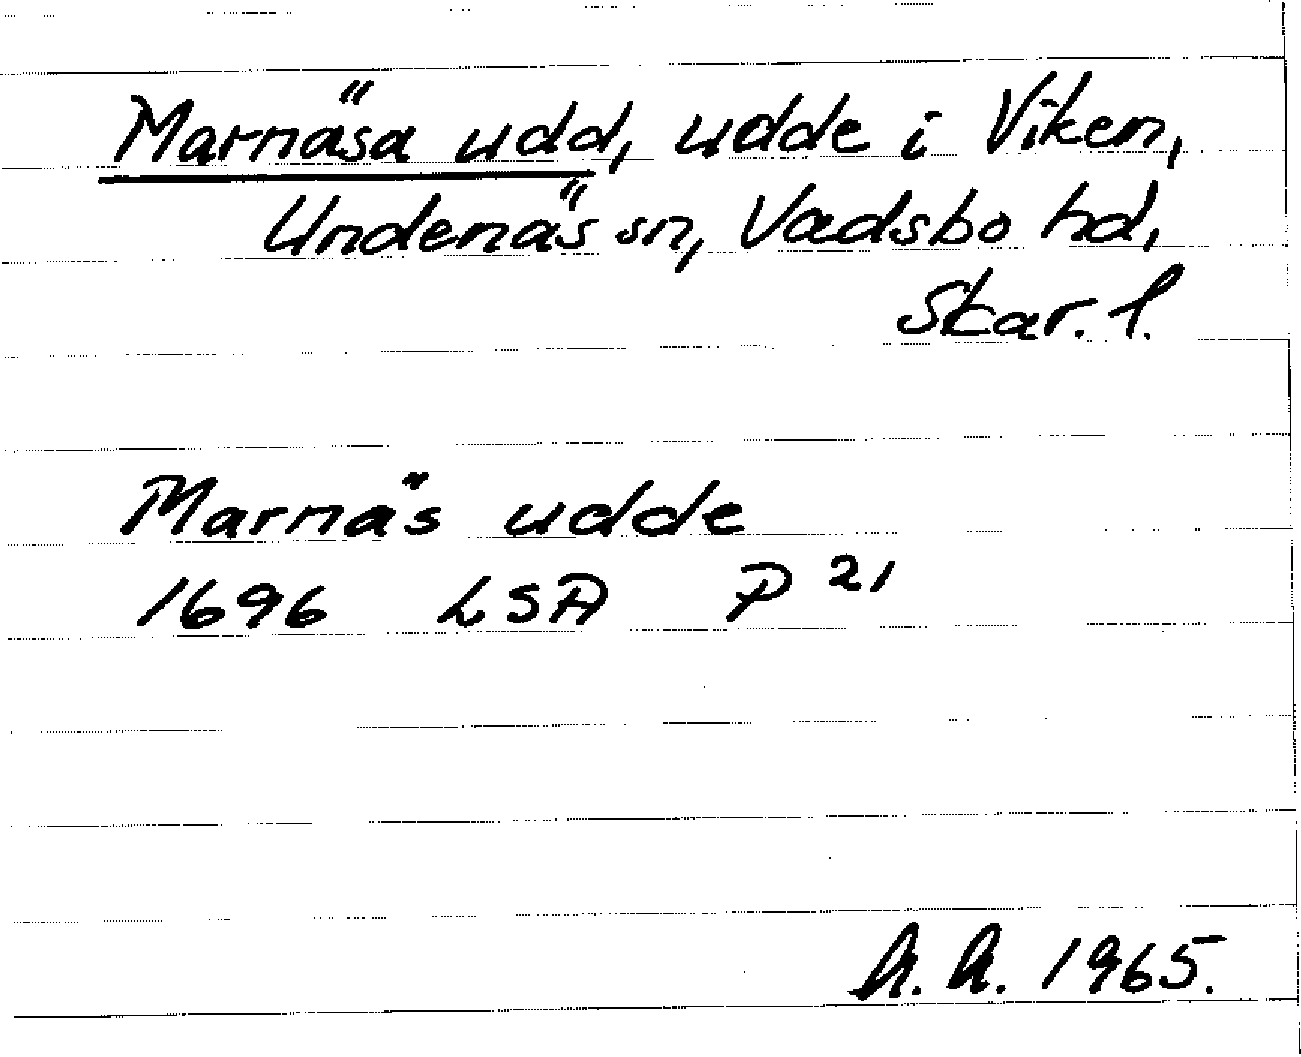 Marnäsa udd, udde i Viken,
Undenäs sn, Vadsbo hd,
Skar. l.
Marnäs udde
1696 LSA P 21
A. A. 1965.